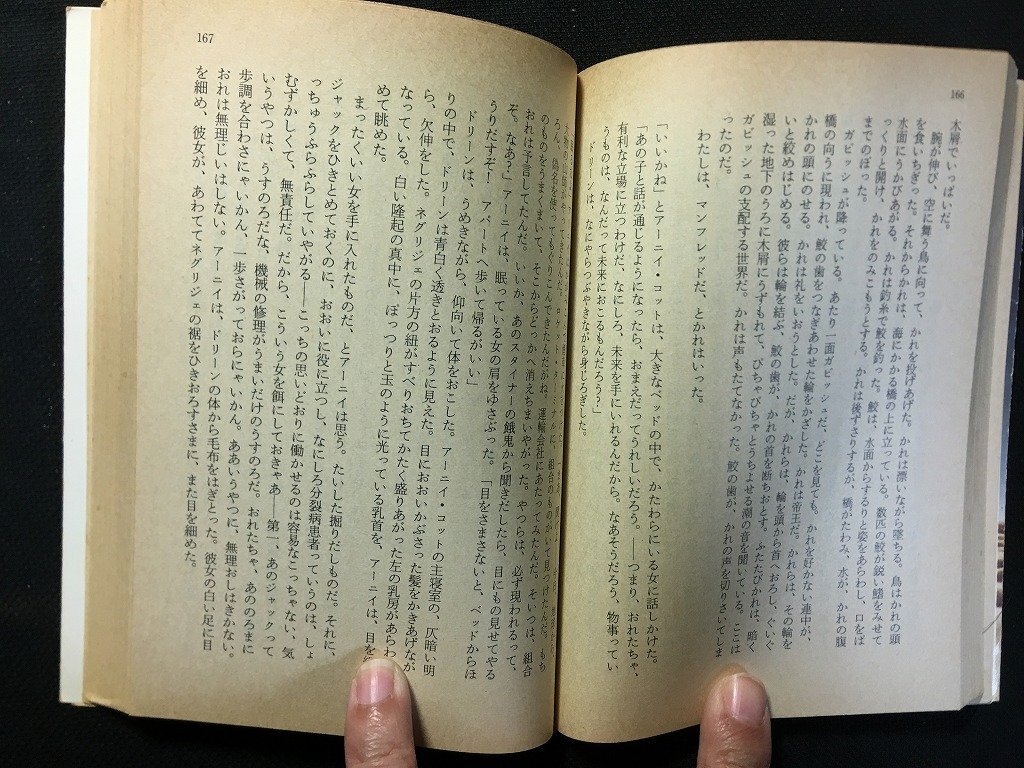 166
木屑でいっぱいだ。
腕が伸び、空に舞う鳥に向って、かれを投げあげた。かれは漂いながら墜ちる。鳥はかれの頭
を食いちぎった。それからかれは、海にかかる橋の上に立っている。数匹の鮫が鋭い鰭をみせて
水面にうかびあがる。かれは釣糸で鮫を釣った。鮫は、水面からするりと姿をあらわし、口をぱ
っくりと開け、かれをのみこもうとする。かれは後ずさりするが、橋がたわみ、水が、かれの腹
までのぼった。
ガビッシュが降っている。あたり一面ガビッシュだ、どこを見ても。かれを好かない連中が、
橋の向うに現われ、鮫の歯をつなぎあわせた輪をかざした。かれは帝王だ。かれらは、その輪を
かれの頭にのせる。かれは礼をいおうとした。だが、かれらは、輪を頭から首へおろし、ぐいぐ
いと絞めはじめる。彼らは輪を結ぶ、鮫の歯が、かれの首を断ちおとす。ふたたびかれは、暗く
湿った地下のうろに木屑にうずもれて、ぴちゃぴちゃとうちよせる潮の音を聞いている。ここは
ガビッシュの支配する世界だ。かれは声もたてなかった。鮫の歯が、かれの声を切りさいてしま
ったのだ。
わたしは、マンフレッドだ、とかれはいった。
「いいかね」とアーニイ・コットは、大きなベッドの中で、かたわらにいる女に話しかけた。
「あの子と話が通じるようになったら、おまえだってうれしいだろう。――つまり、おれたちゃ、
有利な立場に立つわけだ、なにしろ、未来を手にいれるんだから。なあそうだろう、物事ってい
うものは、なんだって未来におこるもんだろう？」
ドリーンは、なにやらつぶやきながら身じろぎした。
167
ろん、偽名を使ってもぐりこんできたんだがね。運輸会社にあたってみたんだ。そいつは、組合
のものをうまくまいて、そこからどっかへ消えちまいやがった。やつらは、必ず現われるって、
おれは予言してたんだ。いいか、あのスタイナーの餓鬼から聞きだしたら、目にもの見せてやる
ぞ。なあ？」アーニイは、眠っている女の肩をゆさぶった。「目をさまさないと、ベッドからほ
うりだすぞ！　アパートへ歩いて帰るがいい」
ドリーンは、うめきながら、仰向いて体をおこした。アーニイ・コットの主寝室の、仄暗い明
りの中で、ドリーンは青白く透きとおるように見えた。目におおいかぶさった髪をかきあげなが
ら、欠伸をした。ネグリジェの片方の紐がすべりおちてかたく盛りあがった左の乳房があらわ
なっている。白い隆起の真中に、ぽっつりと玉のように光っている乳首を、アーニイは、目を
めて眺めた。
まったくいい女を手に入れたものだ、とアーニイは思う。たいした掘りだしものだ。それに、
ジャックをひきとめておくのに、おおいに役に立つし、なにしろ分裂病患者っていうのは、しょ
っちゅうふらふらしていやがる――こっちの思いどおりに働かせるのは容易なこっちゃない、気
むずかしくて、無責任だ。だから、こういう女を餌にしておきゃあ――第一、あのジャックって
いうやつは、うすのろだな、機械の修理がうまいだけのうすのろだ。おれたちゃ、あののろまに
歩調を合わさにゃいかん、一歩さがっておらにゃいかん。ああいうやつに、無理おしはきかない。
おれは無理じいはしない。アーニイは、ドリーンの体から毛布をはぎとった。彼女の白い足に目
を細め、彼女が、あわててネグリジェの裾をひきおろすさまに、また目を細めた。